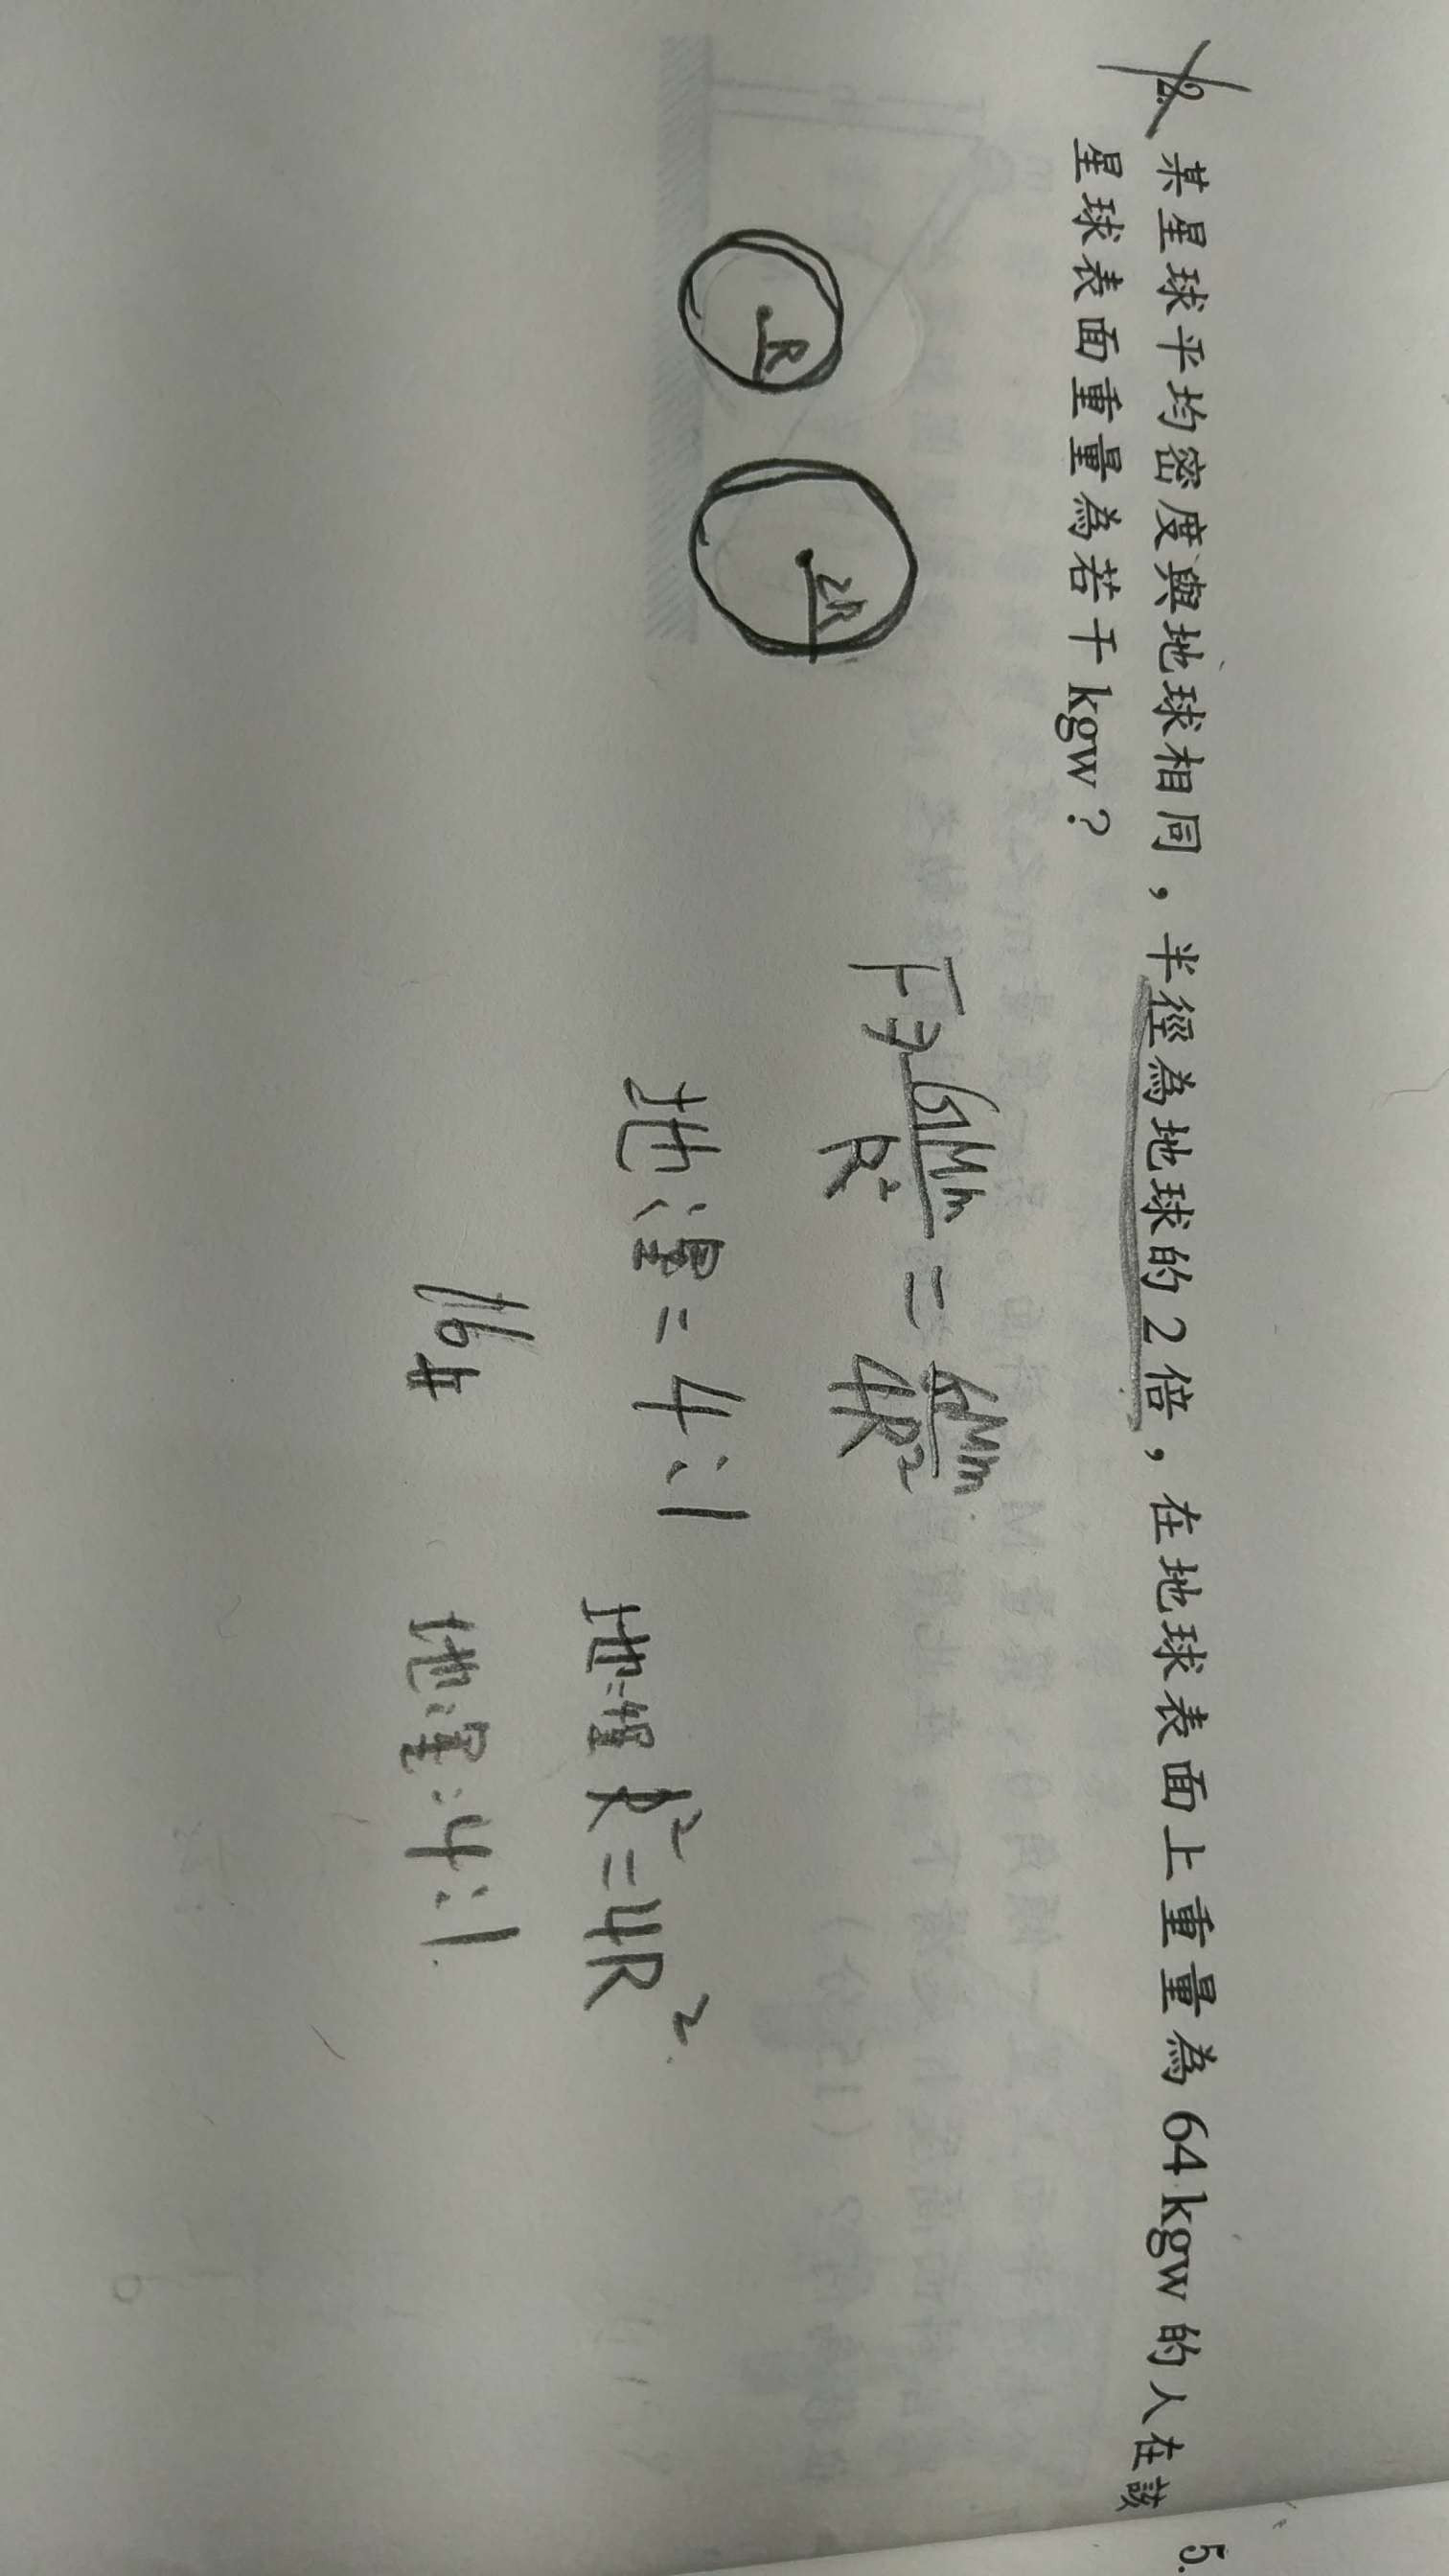 2. 某星球平均密度與地球相同，半徑為地球的2倍，在地球表面上重量為64 kgw的人在該
星球表面重量為若干kgw？
R
2R
F引 GMm/R² = GMm/4R²
地:星=4:1
地:星 R²=4R²
16#
地:星:4:1
5.